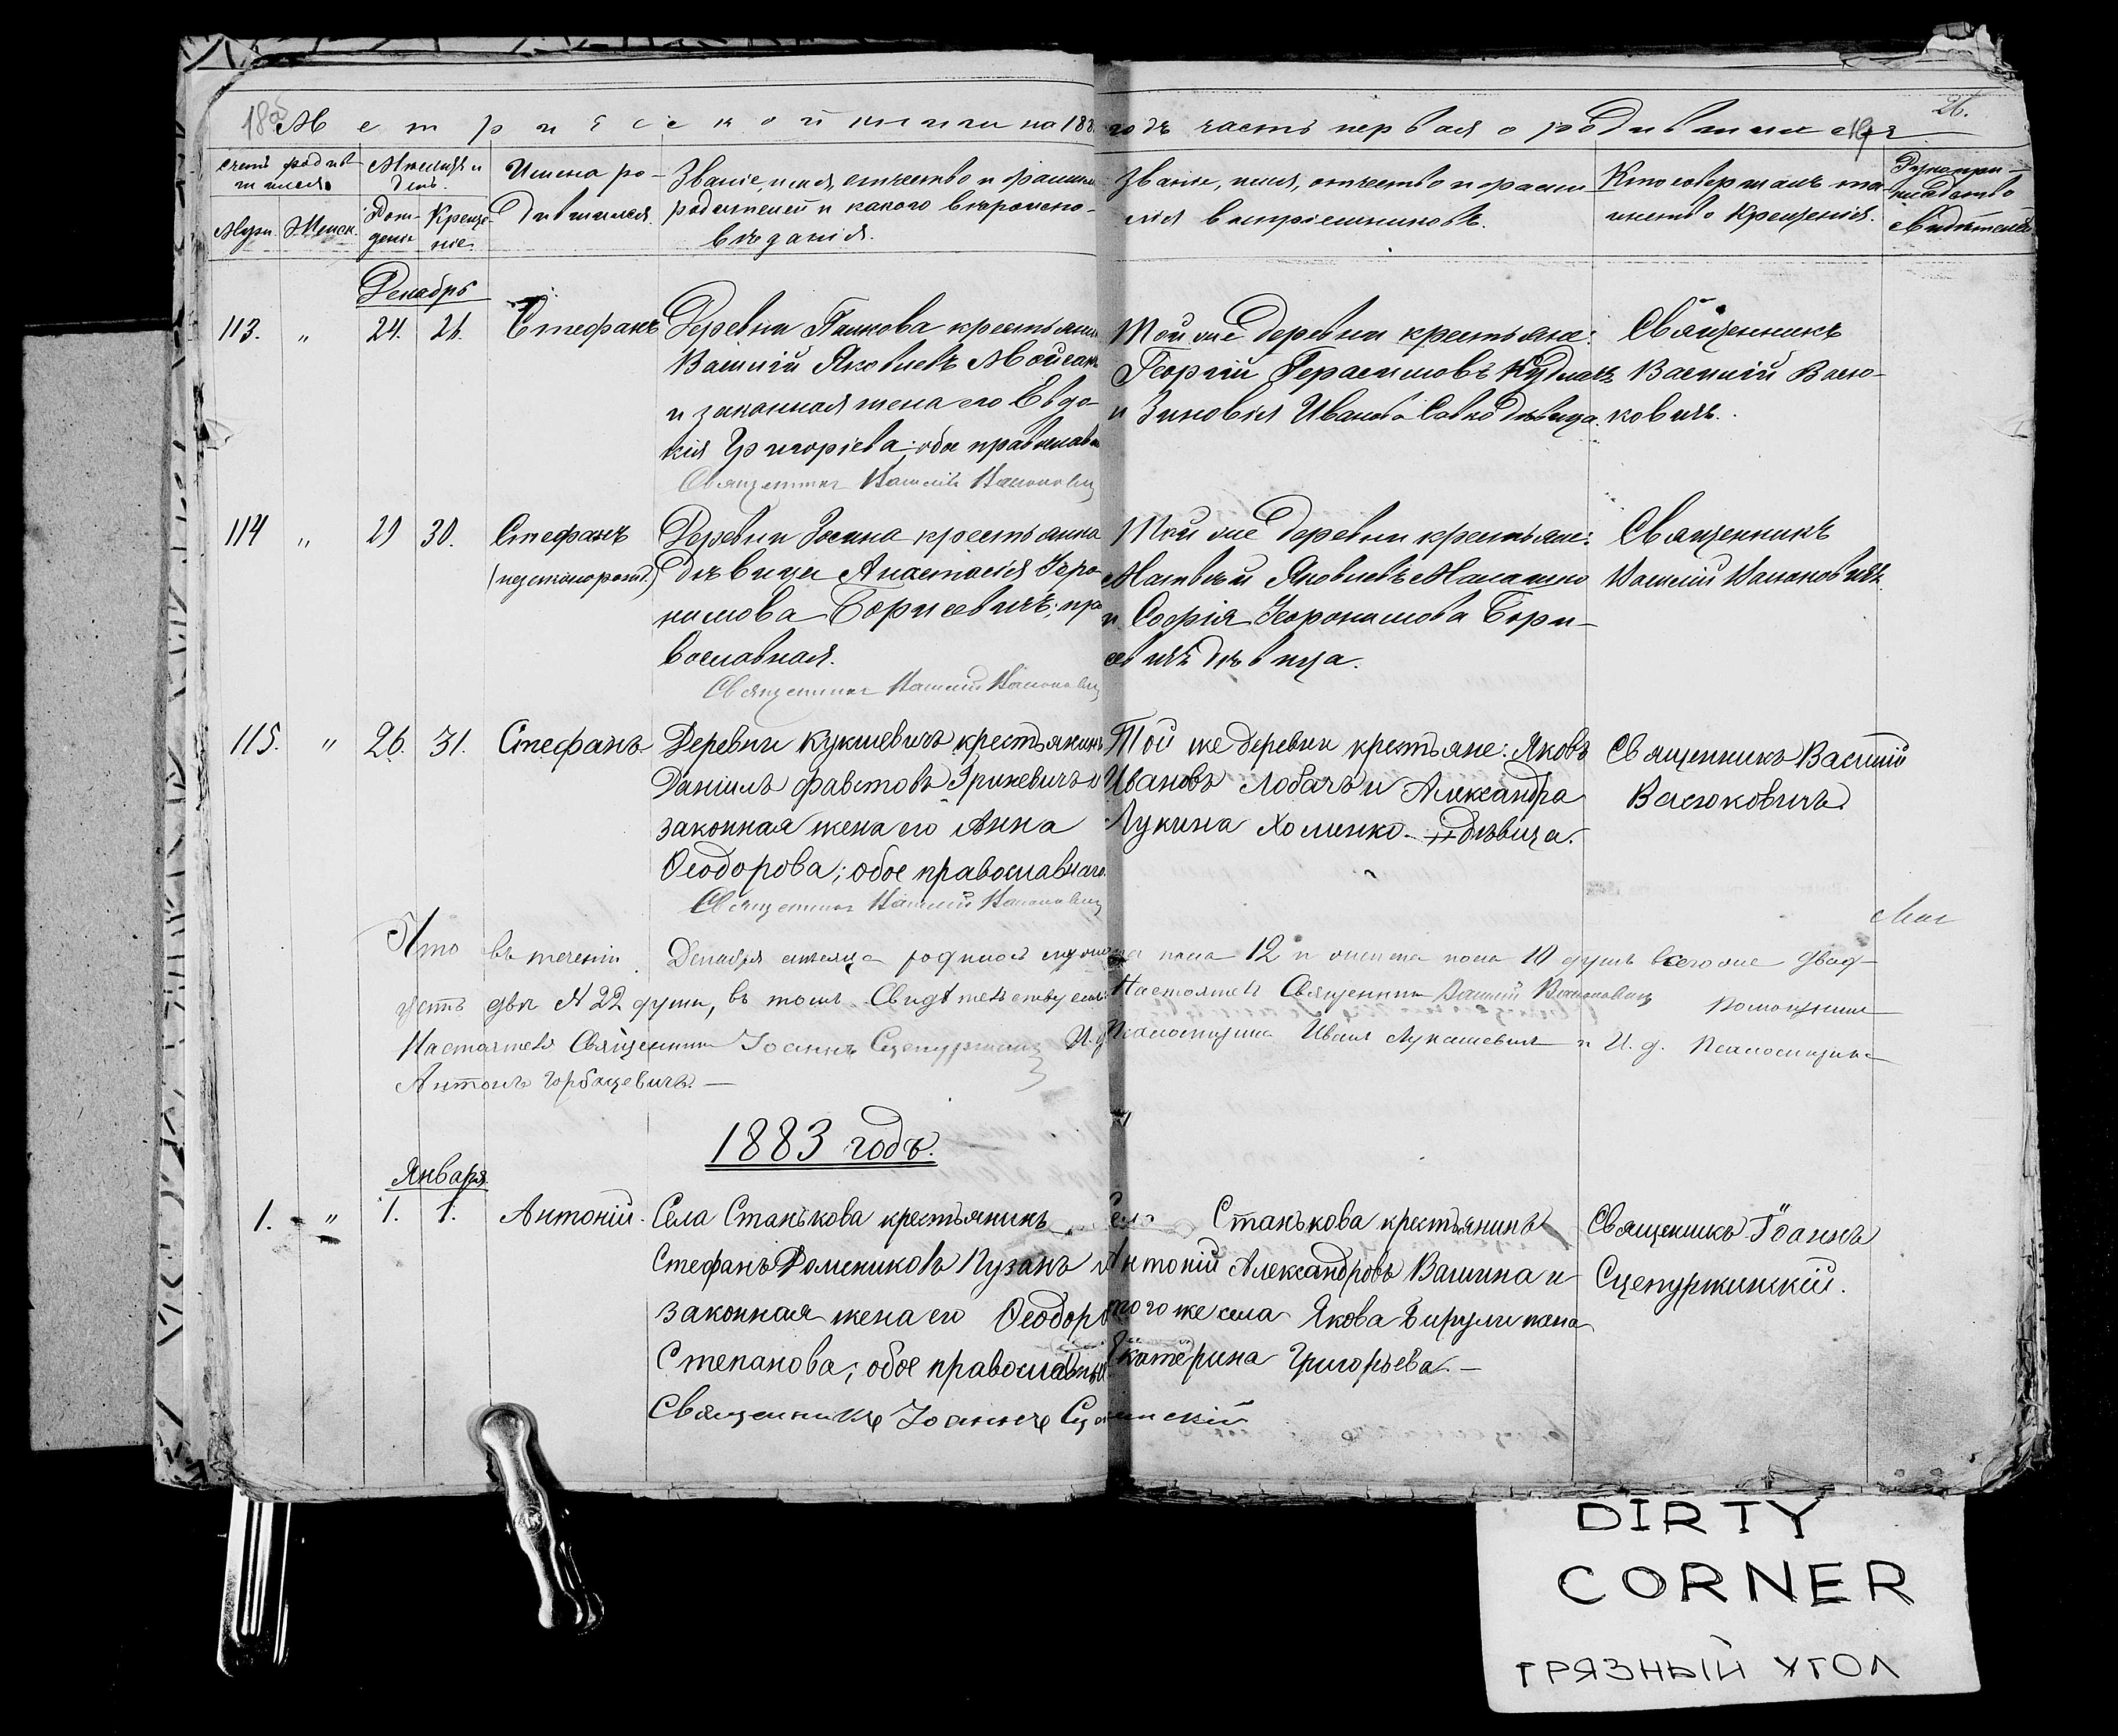 Метрической книги на 188 годъ часть первая о родившихся
26.
Счетъ родившихся.
Мѣсяцъ и день.
Имена родившихся.
Званіе, имя, отчество и фамилія родителей и какого вѣроисповѣданія.
Званіе, имя, отчество и фамилія воспріемниковъ.
Кто совершалъ таинство крещенія.
Рукоприкладство свидѣтелей
Муж. Женск. Рожденія Крещеніе.
Декабрь
113. " 24. 26. Стефанъ
Деревни крестьянинъ
Василій Яковлевъ
и законная жена его Евдо-
кія Григоріева; обое православн
Священникъ Василій Васюковичъ
Той же деревни крестьяне:
Георгій Герасимовъ Кудлачъ
и Зиновія Иванова Савко дѣвица.
Священникъ
Василій Васю-
ковичъ.
114 " 29 30. Стефанъ
(незаконорожд.)
Деревни крестьянка
дѣвица Анастасія Іеро-
нимова Борисевичъ; пра
вославная.
Священникъ Василій Васюковичъ
Той же деревни крестьяне:
Матвѣй Яковлевъ
и Софія Іеронимова Бори-
севичъ дѣвица.
Священникъ
Василій Васюковичъ.
115. " 26. 31. Стефанъ
Деревни Кукшевичъ крестьянинъ
Даніилъ Фавстовъ Гриневичъ и
законная жена его Анна
Ѳеодорова; обое православнаго.
Священникъ Василій Васюковичъ
Той же деревни крестьяне: Яковъ
Ивановъ Лобачъ и Александра
Лукина Хоменко дѣвица.
Священникъ Василій
Васюковичъ.
Что въ теченіи Декабря мѣсяца родилось мужеска пола 12 и женска пола 10 душъ всего же двад-
цать двѣ № 22 души, въ томъ Свидѣтельствуемъ: Настоятель Священникъ Василій Васюковичъ Помощникъ
Настоятеля Священникъ Іоаннъ Сцепуржинскій И. д. Псаломщика Иванъ Лукашевичъ и И. д. Псаломщика
Антонъ Горбацевичъ.—
1883 годъ.
Января.
1. " 1. 1. Антоній.
Села Станькова крестьянинъ
Стефанъ Домениковъ Пузанъ и
законная жена его Ѳеодора
Степанова; обое православные
Священникъ Іоаннъ
Села Станькова крестьянинъ
Антоній Александровъ Вашина и
того же села Якова Бирули жена
Екатерина Григорьева.—
Священникъ Іоаннъ
Сцепуржинскій.
DIRTY
CORNER
ГРЯЗНЫЙ УГОЛ